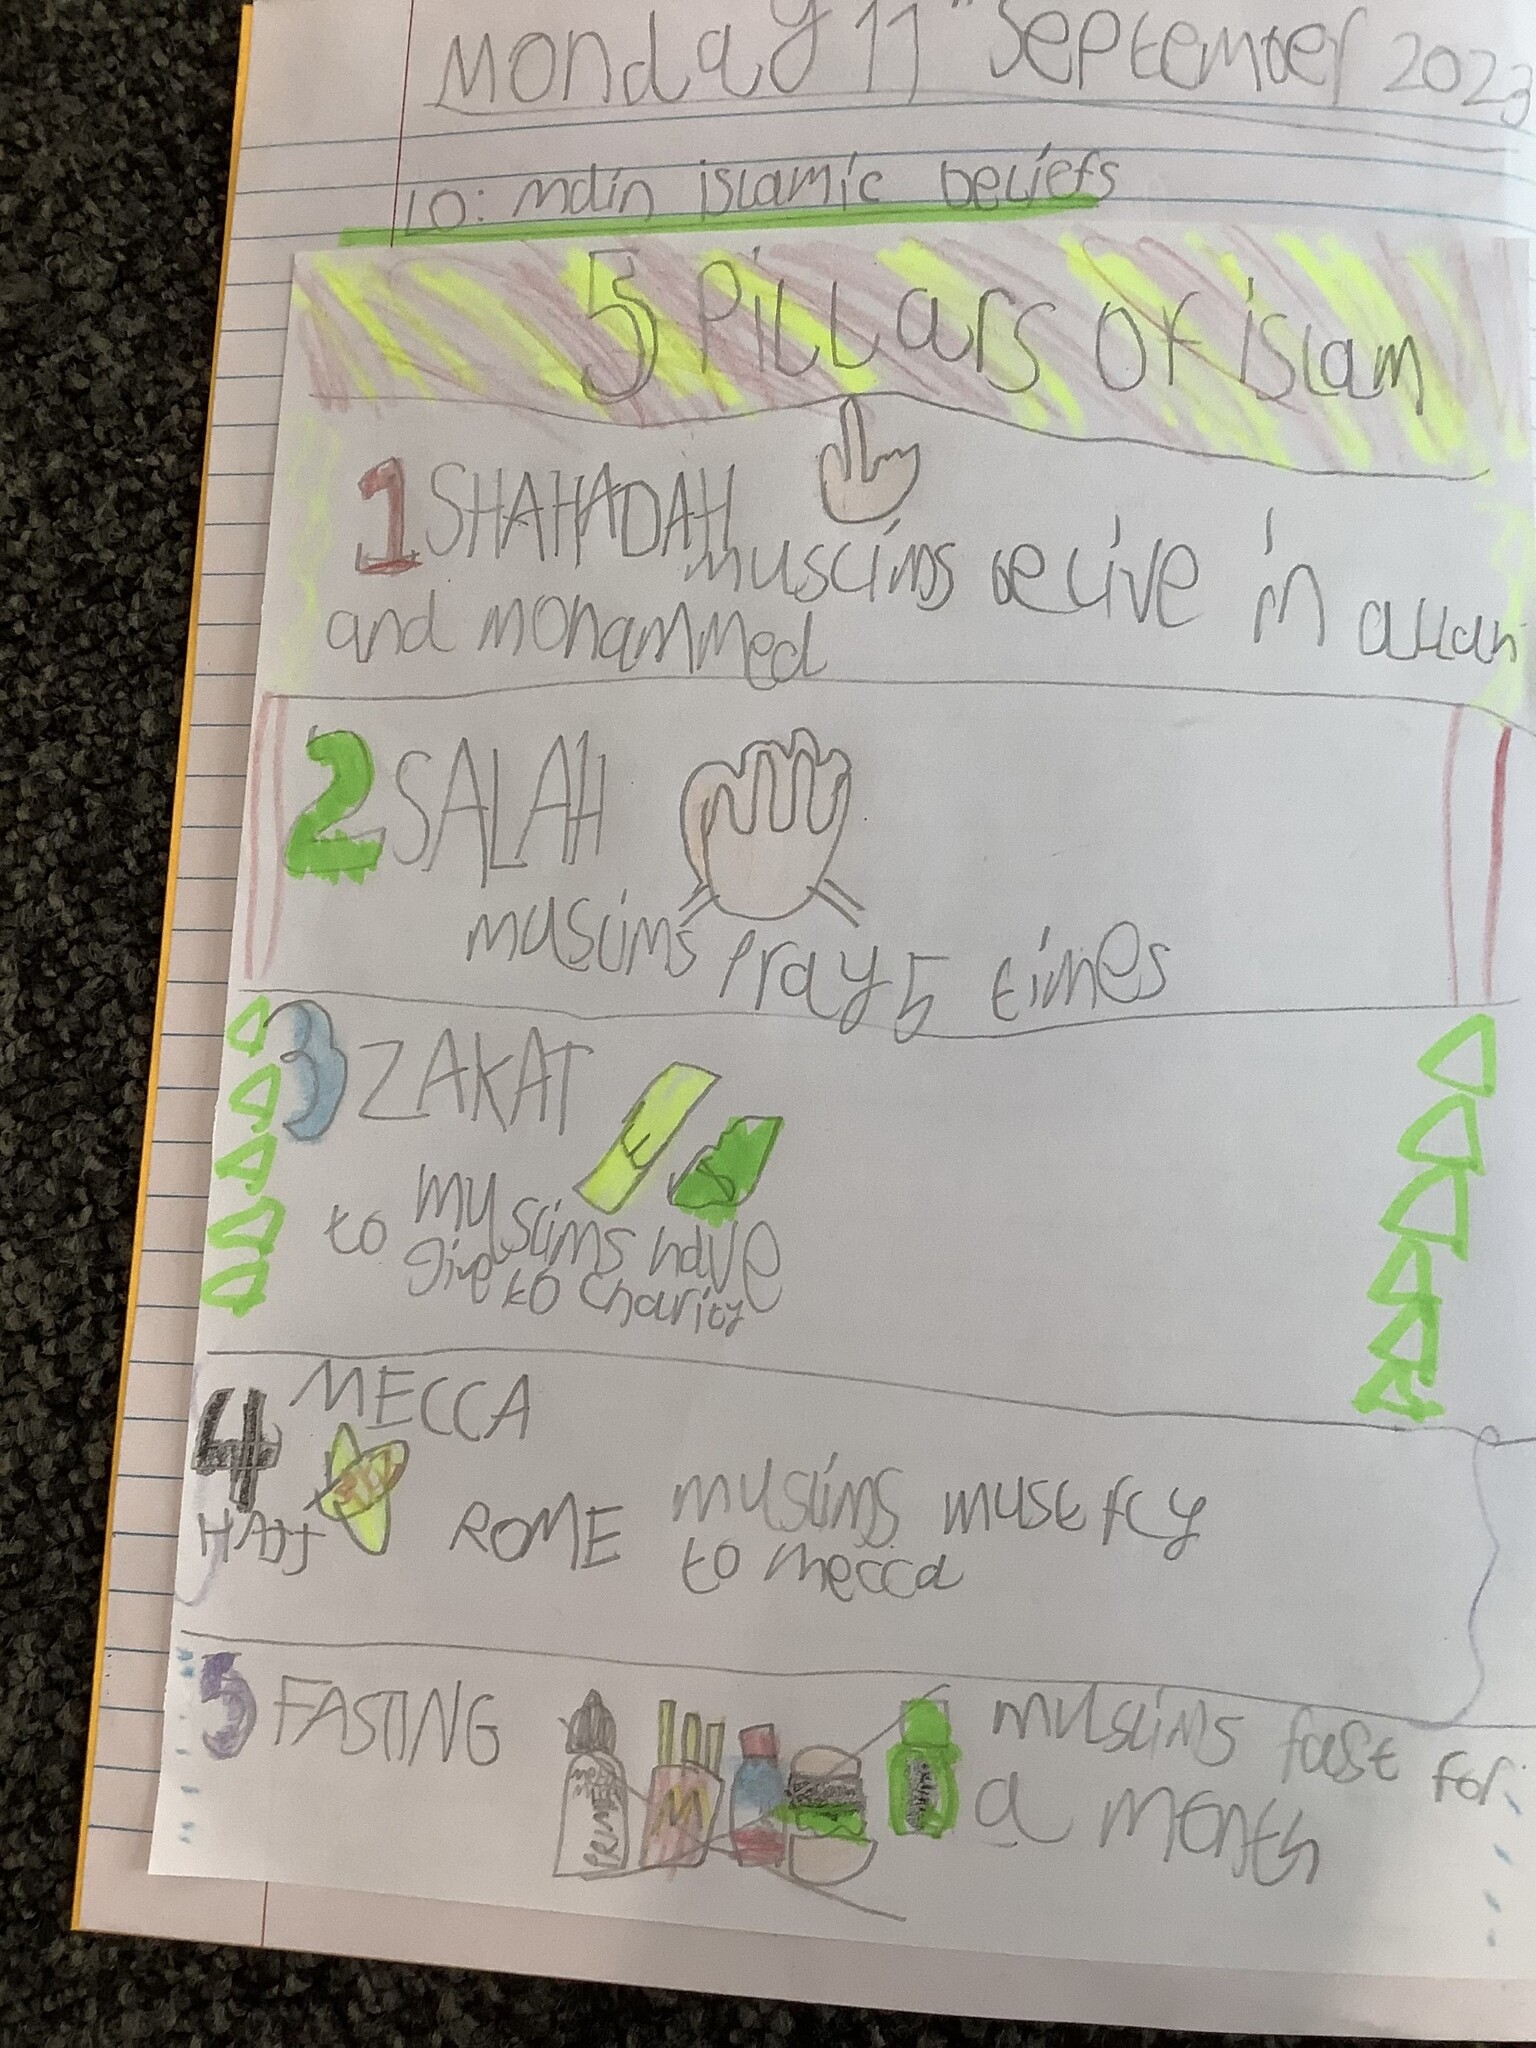 Monday 11th September 2023
LO: main islamic beliefs
5 Pillars of islam
1 SHAHADAH
muslims belive in allah
and mohammed
2 SALAH
muslims pray 5 times
3 ZAKAT
muslims have
to give to charity
4 MECCA
HAJJ ROME muslims must fly
to mecca
5 FASTING
PRIME
M
muslims fast for
a month